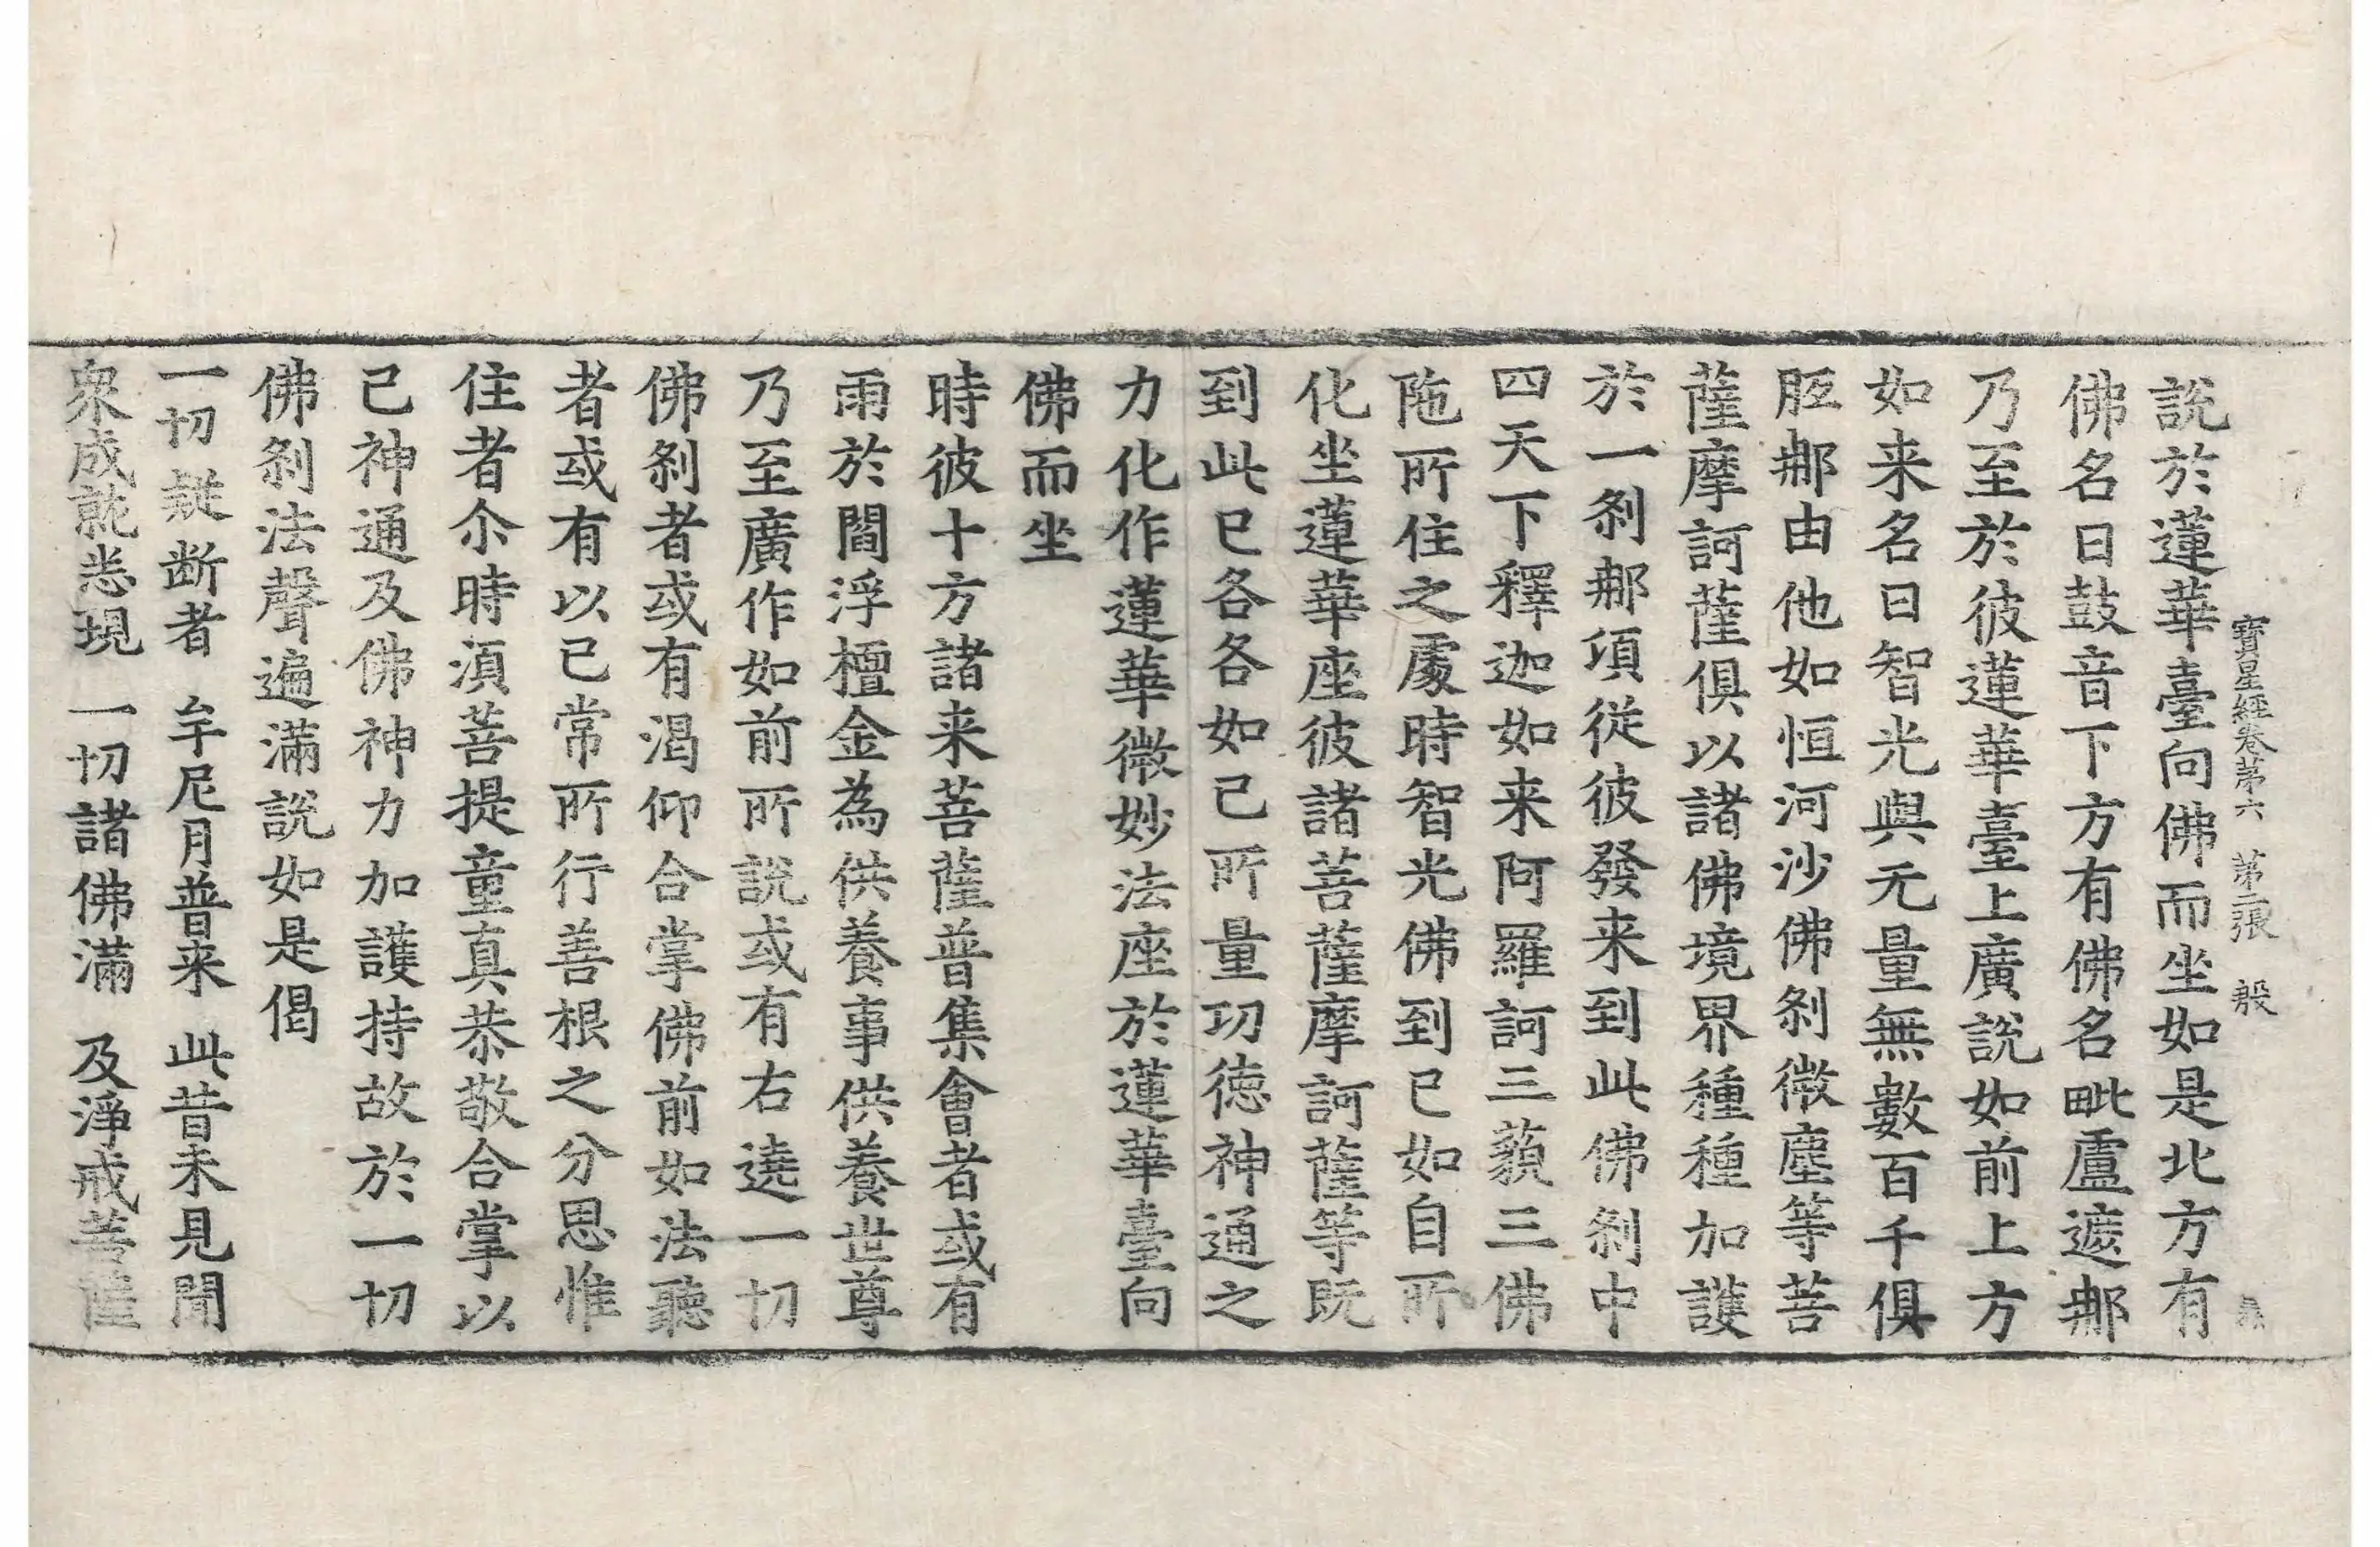 寶星經卷第六 第二張 殷
說於蓮華臺向佛而坐如是北方有
佛名曰鼓音下方有佛名毗盧遮那
乃至於彼蓮華臺上廣說如前上方
如来名曰智光與无量無數百千俱
胝那由他如恒河沙佛剎微塵等菩
薩摩訶薩俱以諸佛境界種種加護
於一剎那項從彼發来到此佛剎中
四天下釋迦如来阿羅訶三藐三佛
陁所住之處時智光佛到已如自所
化坐蓮華座彼諸菩薩摩訶薩等既
到此已各各如己所量功徳神通之
力化作蓮華微妙法座於蓮華臺向
佛而坐
時彼十方諸来菩薩普集會者或有
雨於閻浮檀金為供養事供養世尊
乃至廣作如前所說或有右遶一切
佛剎者或有渴仰合掌佛前如法聽
者或有以己常所行善根之分思惟
住者尒時湏菩提童真恭敬合掌以
己神通及佛神力加護持故於一切
佛剎法聲遍滿說如是偈
一切疑断者 牟尼月普来 此昔未見聞
衆成就悉現 一切諸佛滿 及淨戒菩薩